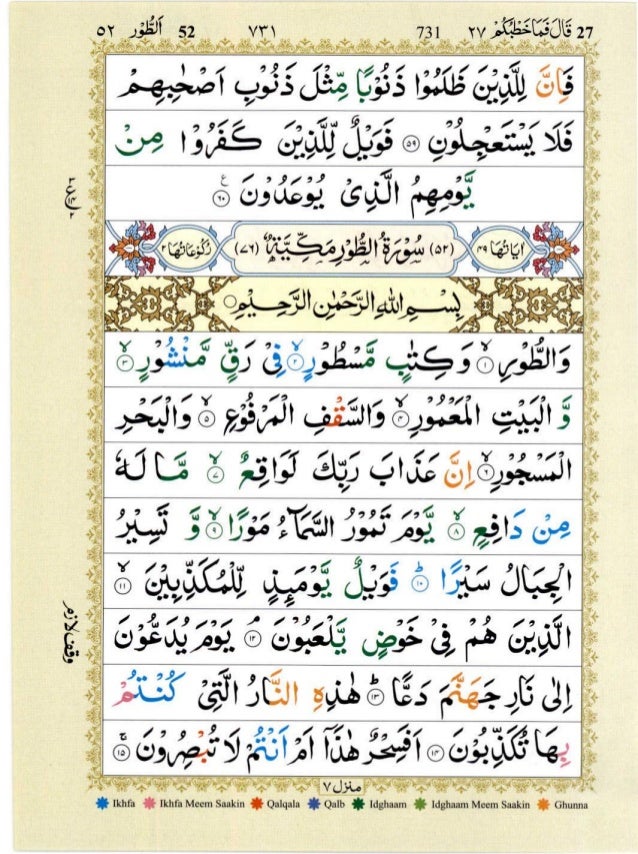 ٥٢ اَلطُّوْر 52 ٧٣١ 731 ٢٧ قَالَ فَمَا خَطْبُكُمْ 27
فَاِنَّ لِلَّذِيْنَ ظَلَمُوْا ذَنُوْبًا مِّثْلَ ذَنُوْبِ اَصْحٰبِهِمْ
فَلَا يَسْتَعْجِلُوْنِ ۝۵۹ فَوَيْلٌ لِّلَّذِيْنَ كَفَرُوْا مِنْ
يَّوْمِهِمُ الَّذِىْ يُوْعَدُوْنَ ۝۶۰ ع
اٰيَاتُهَا ٤٩ (٥٢) سُوْرَةُ الطُّوْرِ مَكِّيَّةٌ (٧٦) رُكُوْعَاتُهَا ٢
بِسْمِ اللهِ الرَّحْمٰنِ الرَّحِيْمِ
وَالطُّوْرِ ۝۱ۙ وَكِتٰبٍ مَّسْطُوْرٍ ۝۲ۙ فِىْ رَقٍّ مَّنْشُوْرٍ ۝۳ۙ
وَّالْبَيْتِ الْمَعْمُوْرِ ۝۴ۙ وَالسَّقْفِ الْمَرْفُوْعِ ۝۵ۙ وَالْبَحْرِ
الْمَسْجُوْرِ ۝۶ۙ اِنَّ عَذَابَ رَبِّكَ لَوَاقِعٌ ۝۷ۙ مَّا لَهٗ
مِنْ دَافِعٍ ۝۸ۙ يَّوْمَ تَمُوْرُ السَّمَآءُ مَوْرًا ۝۹ۙ وَّ تَسِيْرُ
الْجِبَالُ سَيْرًا ۝۱۰ؕ فَوَيْلٌ يَّوْمَئِذٍ لِّلْمُكَذِّبِيْنَ ۝۱۱ۙ
الَّذِيْنَ هُمْ فِىْ خَوْضٍ يَّلْعَبُوْنَ ۝۱۲ۘ يَوْمَ يُدَعُّوْنَ
وقف لازم
اِلٰى نَارِ جَهَنَّمَ دَعًّا ۝۱۳ؕ هٰذِهِ النَّارُ الَّتِىْ كُنْتُمْ
بِهَا تُكَذِّبُوْنَ ۝۱۴ اَفَسِحْرٌ هٰذَاۤ اَمْ اَنْتُمْ لَا تُبْصِرُوْنَ ۝۱۵ۚ
منزل ٧
Ikhfa Ikhfa Meem Saakin Qalqala Qalb Idghaam Idghaam Meem Saakin Ghunna